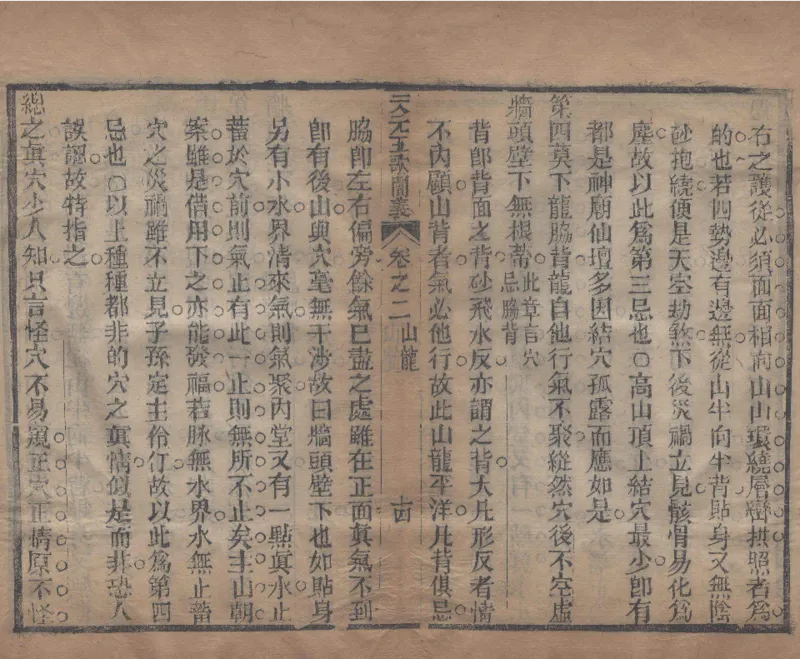 右之護從必須面面相向山山環繞層巒拱照者為
的也若四勢邊有邊無從山半向半背貼身又無陰
砂抱繞便是天空劫煞下後災禍立見骸骨易化為
塵故以此為第三忌也○高山頂上結穴最少卽有
都是神廟仙壇多因結穴孤露而應如是
第四莫下龍脇背龍自他行氣不聚縱然穴後不空虛
牆頭壁下無根蒂此章言穴忌脇背
背卽背面之背砂飛水反亦謂之背大凡形反者情
不內顧山背者氣必他行故此山龍平洋凡背俱忌
天元五歌闡義 卷之二 山龍 十四
脇卽左右偏旁餘氣已盡之處雖在正面眞氣不到
卽有後山與穴毫無干涉故曰牆頭壁下也如貼身
另有小水界清來氣則氣聚內堂又有一點眞水止
蓄於穴前則氣止有此一止則無所不止矣主山朝
案雖是借用下之亦能發福若脉無水界水無止蓄
穴之災禍雖不立見子孫定主伶仃故以此為第四
忌也○以上種種都非的穴之眞情似是而非恐人
誤認故特指之
總之眞穴少人知只言怪穴不易窺正穴正情原不怪